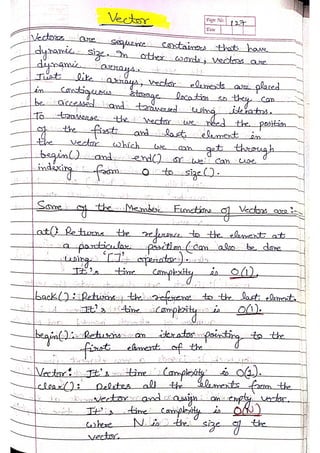 Vector
Page No. 127
Date
Vectors are sequence containers that have
dynamic size. In other words, vectors are
dynamic arrays.
Just like arrays, vector elements are placed
in contiguous storage location so they can
be accessed and traversed using iterators.
To traverse the vector we need the position
of the first and last element in
the vector which we can get through
begin() and end() or we can use
indexing from 0 to size().
Some of the Member Functions of Vectors are:-
at(): Returns the reference to the element at
a particular position (can also be done
using '[]' operator).
It's time complexity is O(1).
back(): Returns the reference to the last element.
It's time complexity is O(1).
begin(): Returns an iterator pointing to the
first element of the
Vector: It's time Complexity is O(1).
clear(): Deletes all the elements from the
vector and assign an empty vector.
It's time complexity is O(N)
where N is the size of the
vector.